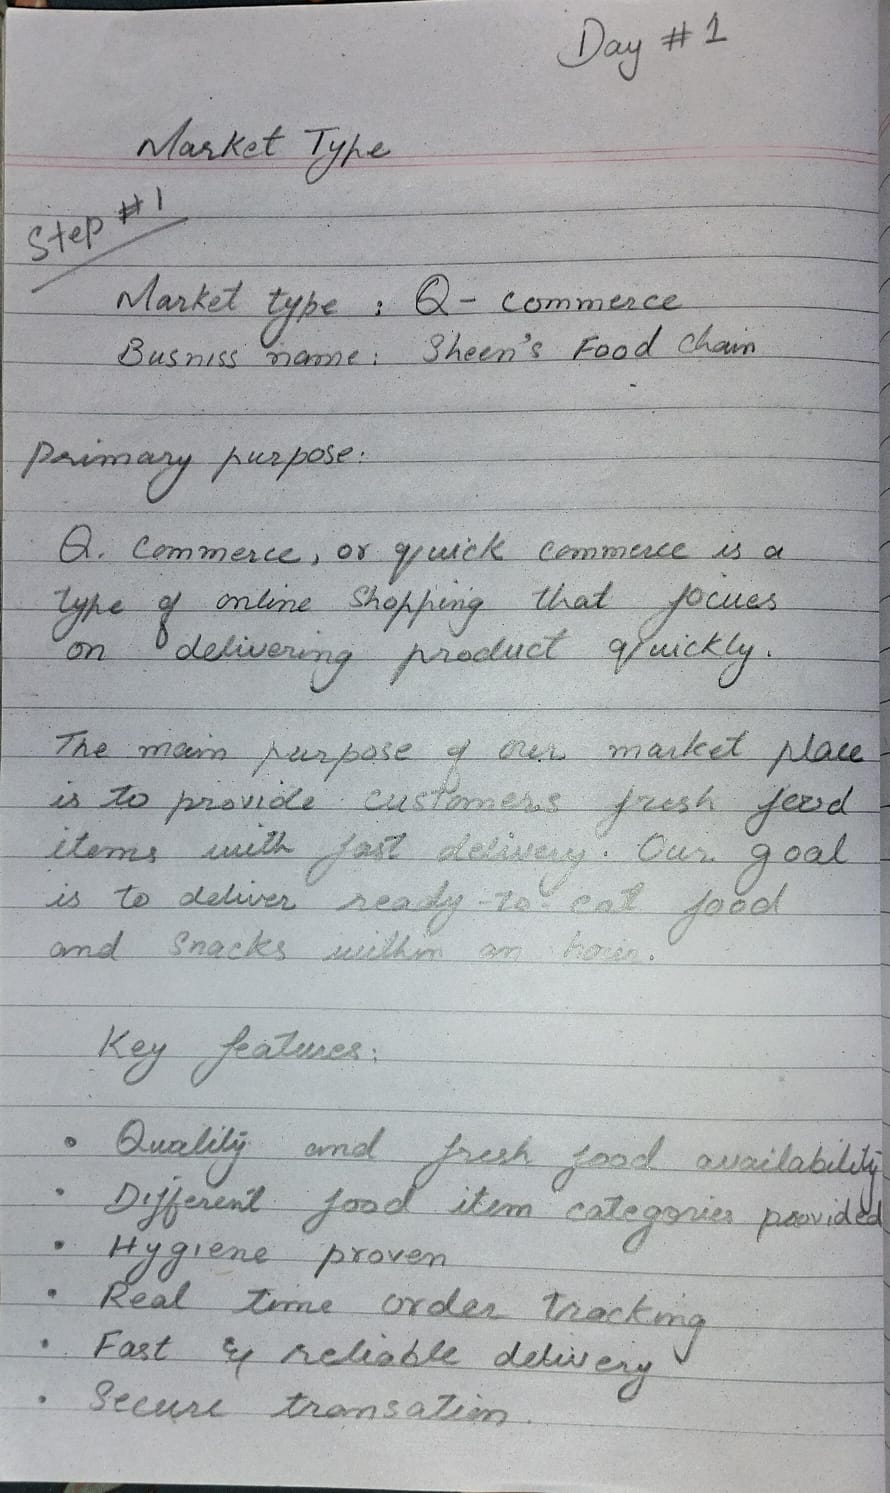 Day #1
Market Type
Step #1
Market type : Q- commerce
Busniss name: Sheen's Food Chain
Primary purpose:
Q. Commerce, or quick commerce is a
type of online Shopping that focues
on delivering product quickly.
The main purpose of our market place
is to provide customers fresh food
items with fast delivery. Our goal
is to deliver ready-to-eat food
and Snacks within an hour.
Key features:
• Quality and fresh food availability
• Different food item categories provided
• Hygiene proven
• Real time order tracking
• Fast & reliable delivery
• Secure transation.